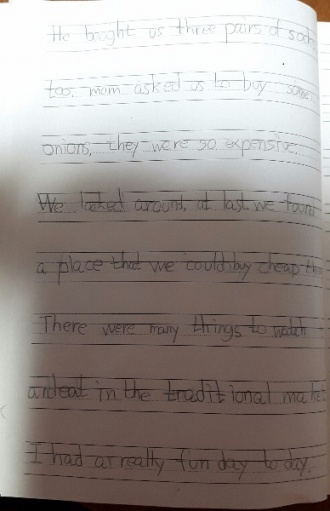 He boght us three pairs of socks
too. mom asked us to buy some
onions. they were so expensive.
We looked around. at last we found
a place that we could buy cheap
There were many things to watch
and eat in the traditional market
I had a really fun day today.